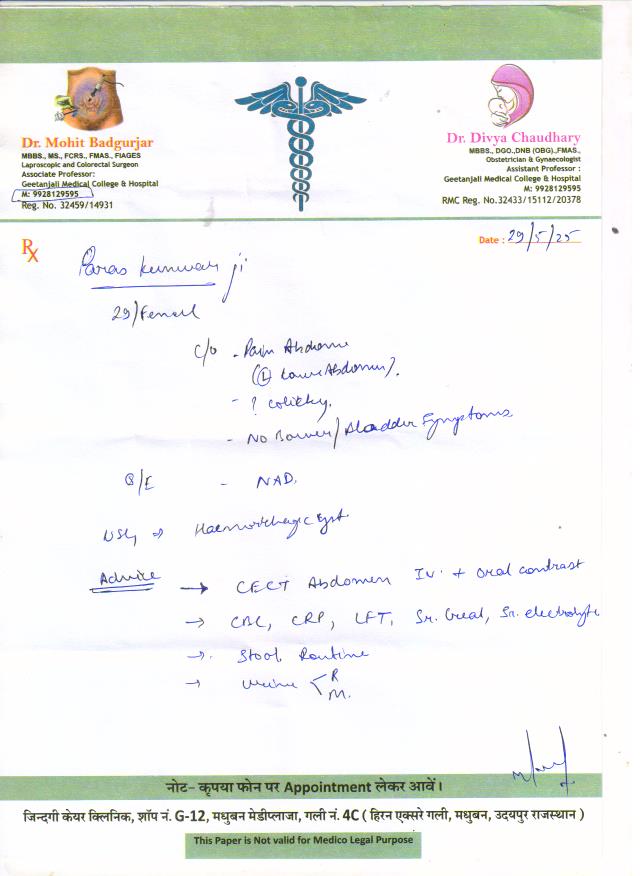 Dr. Mohit Badgurjar
MBBS., MS., FCRS., FMAS., FIAGES
Laproscopic and Colorectal Surgeon
Associate Professor:
Geetanjali Medical College & Hospital
M: 9928129595
Reg. No. 32459/14931
Dr. Divya Chaudhary
MBBS., DGO.,DNB (OBG).,FMAS.,
Obstetrician & Gynaecologist
Assistant Professor :
Geetanjali Medical College & Hospital
M: 9928129595
RMC Reg. No.32433/15112/20378
Rx
Date : 29/5/25
Paras Kunwar ji
29/Female
C/o - Pain Abdomen
(L) Lower Abdomen).
- ? colicky.
- No Bowel/Bladder Symptoms
O/E - NAD.
USG => Haemorrhagic Cyst
Advice → CECT Abdomen IV + Oral contrast
→ CBC, CRP, LFT, Sr. Creat, Sr. electrolyte
→ Stool Routine
→ Urine < R
M.
नोट- कृपया फोन पर Appointment लेकर आवें।
जिन्दगी केयर क्लिनिक, शॉप नं. G-12, मधुबन मेडीप्लाजा, गली नं. 4C ( हिरन एक्सरे गली, मधुबन, उदयपुर राजस्थान )
This Paper is Not valid for Medico Legal Purpose